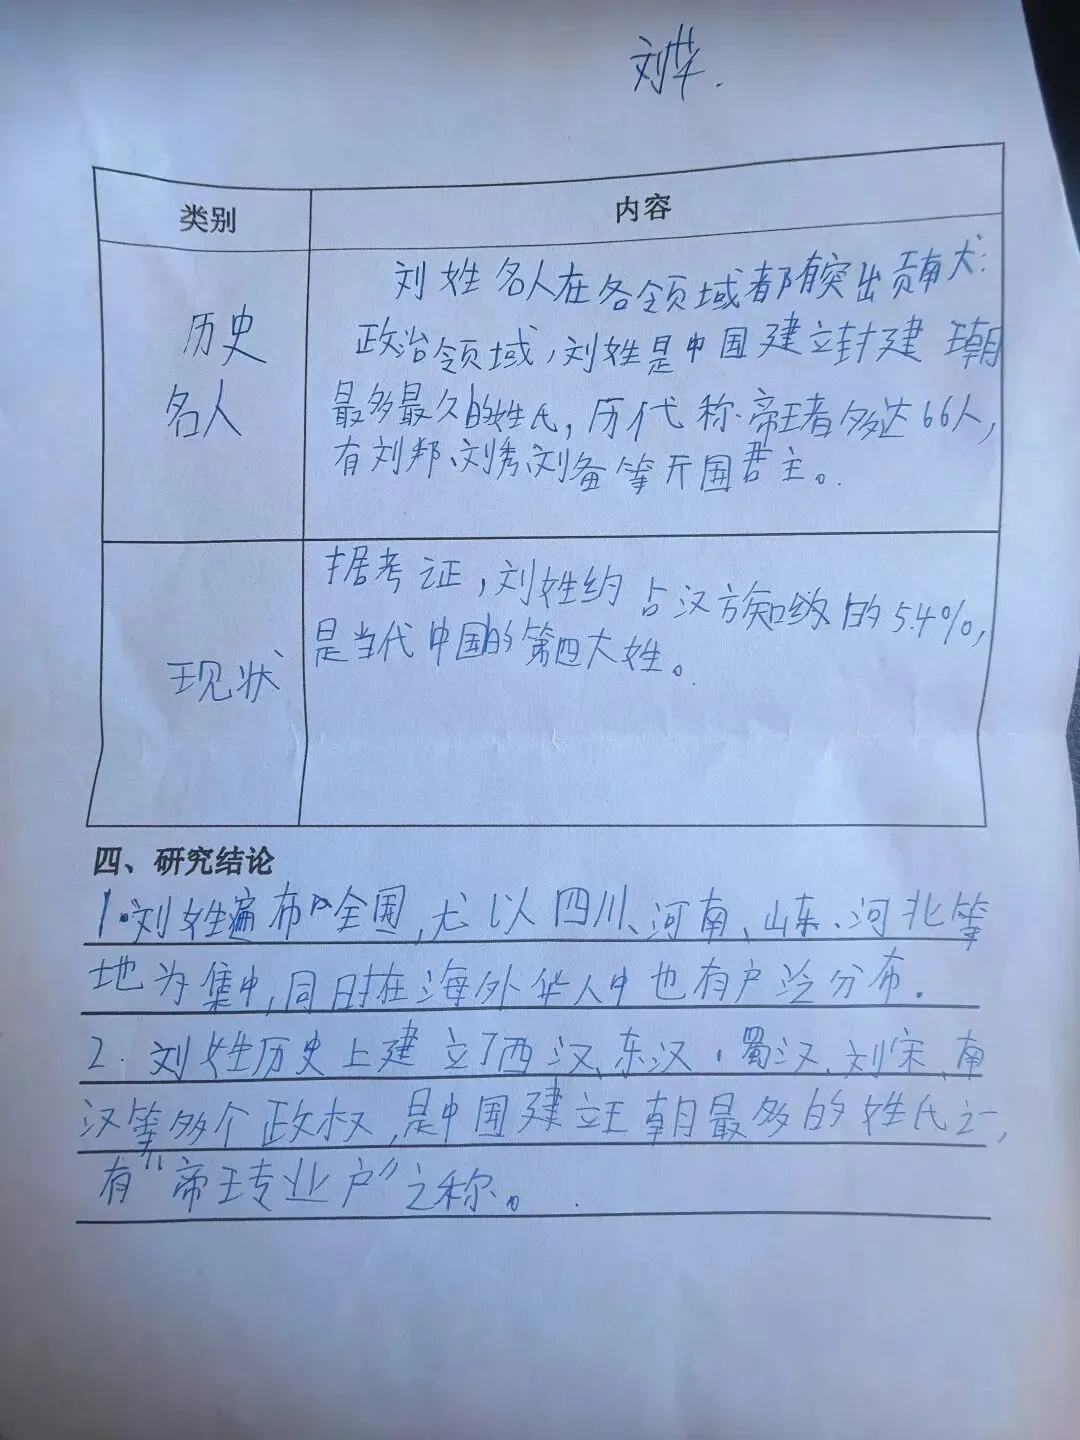 刘华.
类别 内容
历史
名人
刘姓名人在各领域都有突出贡献:
政治领域,刘姓是中国建立封建王朝
最多最久的姓氏,历代称帝王者多达66人,
有刘邦、刘秀、刘备等开国君主。
现状
据考证,刘姓约占汉族的5.4%,
是当代中国的第四大姓。
四、研究结论
1.刘姓遍布全国,尤以四川、河南、山东、河北等
地为集中,同时在海外华人中也有分布.
2.刘姓历史上建立了西汉、东汉、蜀汉、刘宋、南
汉等多个政权,是中国建立王朝最多的姓氏之一,
有“帝王专业户”之称。